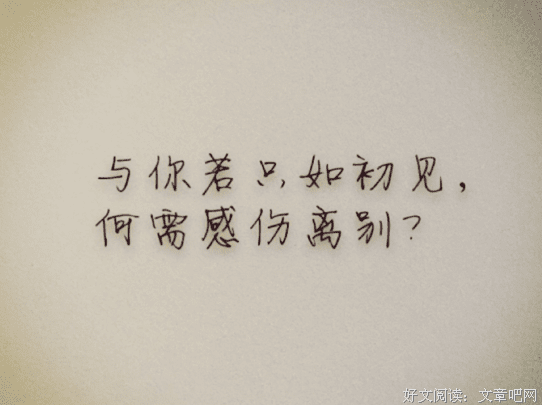 与你若只如初见，
何需感伤离别？
好文阅读：文章吧网